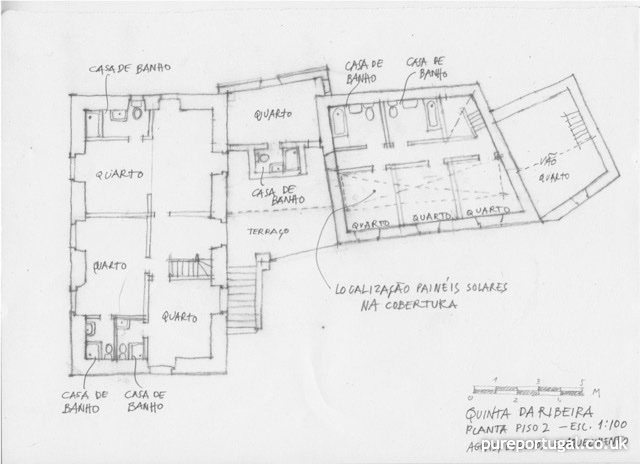 CASA DE BANHO
CASA DE
BANHO
CASA DE
BANHO
QUARTO
QUARTO
CASA DE
BANHO
VÃO
QUARTO
TERRAÇO
QUARTO
QUARTO
QUARTO
QUARTO
QUARTO
LOCALIZAÇÃO PAINÉIS SOLARES
NA COBERTURA
CASA DE
BANHO
CASA DE
BANHO
1 3 5
0 2 4 M
QUINTA DA RIBEIRA
PLANTA PISO 2 - ESC. 1:100
pureportugal.co.uk